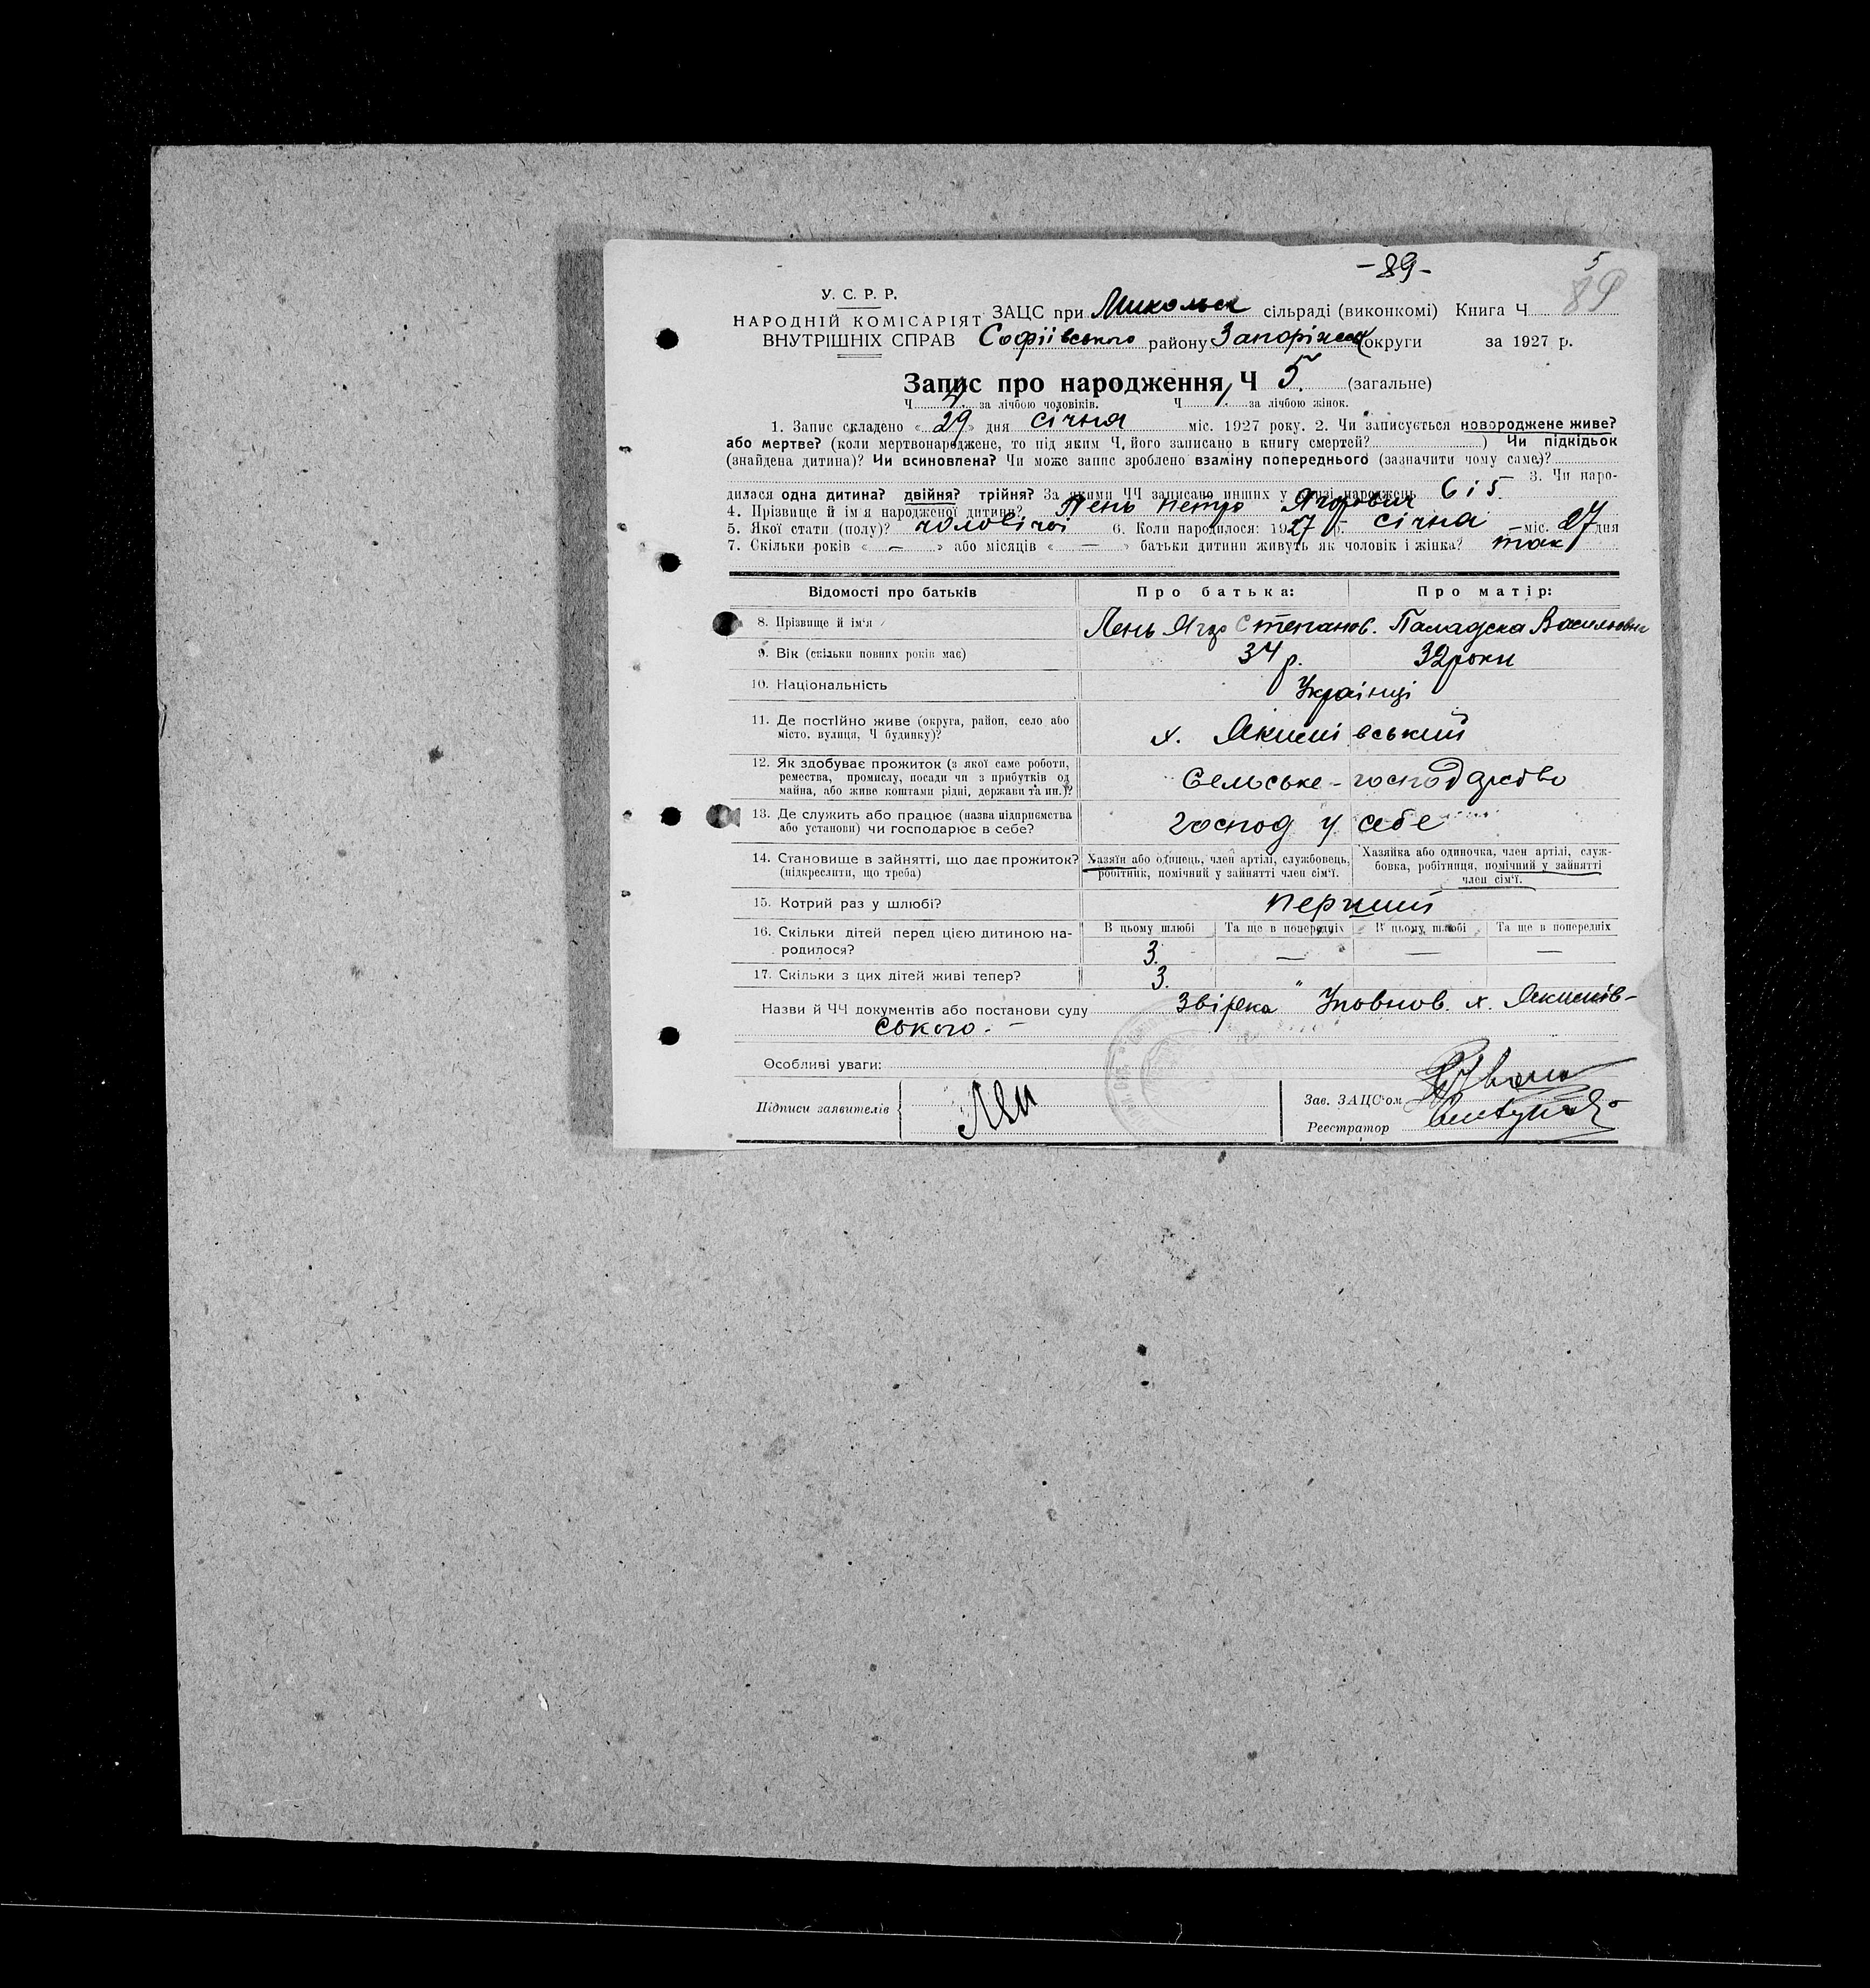 -89-
5
89
У. С. Р. Р.
НАРОДНІЙ КОМІСАРІЯТ
ВНУТРІШНІХ СПРАВ
ЗАЦС при Микольск сільраді (виконкомі) Книга Ч
Софіівського району Запоріжськ округи за 1927 р.
Запис про народження Ч 5. (загальне)
Ч 4. за лічбою чоловіків. Ч / за лічбою жінок.
1. Запис складено « 29 » дня січня міс. 1927 року. 2. Чи записується новороджене живе?
або мертве? (коли мертвонароджене, то під яким Ч, його записано в книгу смертей? ) Чи підкідьок
(знайдена дитина)? Чи всиновлена? Чи може запис зроблено взаміну попереднього (зазначити чому саме)?
3. Чи наро-
дилася одна дитина? двійня? трійня? За якими ЧЧ записано инших у книзі народжень 6 і 5.
4. Прізвище й ім'я народженої дитини? Лень Петро Ягорович
5. Якої стати (полу)? чоловічої 6. Коли народилося: 1927 р. січня міс. 27 дня
7. Скільки років « — » або місяців « — » батьки дитини живуть як чоловік і жінка? так
Відомості про батьків Про батька: Про матір:
8. Прізвище й ім'я Лень Ягор Степанов. Паладска Васильовна
9. Вік (скільки повних років має) 34 р. 32 роки
10. Національність Украінці
11. Де постійно живе (округа, район, село або
місто, вулиця, Ч будинку)? х. Якимівський
12. Як здобуває прожиток (з якої саме роботи,
ремества, промислу, посади чи з прибутків од
майна, або живе коштами рідні, держави та ин.)? Сельське-господарство
13. Де служить або працює (назва підприємства
або установи) чи господарює в себе? господ у себе
14. Становище в зайнятті, що дає прожиток?
(підкреслити, що треба)
Хазяїн або одинець, член артілі, службовець,
робітник, помічний у зайнятті член сім'ї.
Хазяйка або одиночка, член артілі, служ-
бовка, робітниця, помічний у зайнятті
член сім'ї.
15. Котрий раз у шлюбі? перший
В цьому шлюбі Та ще в попередніх В цьому шлюбі Та ще в попередніх
16. Скільки дітей перед цією дитиною на-
родилося? 3. — — —
17. Скільки з цих дітей живі тепер? 3. "
Назви й ЧЧ документів або постанови суду звірка Уповнов. х. Якимів-
ського. -
Особливі уваги:
Підписи заявителів Лен
Зав. ЗАЦС'ом
Реєстратор